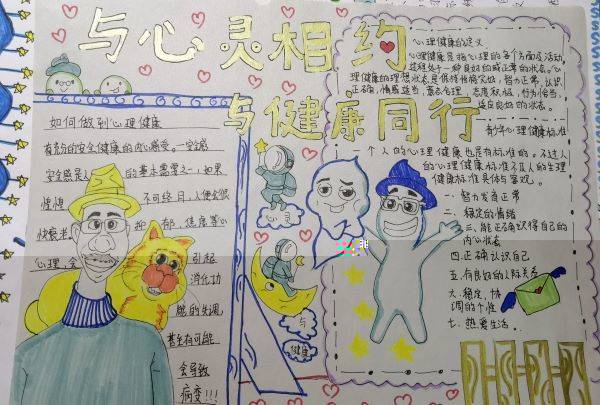 与心灵相约
与健康同行
心理健康的定义
心理健康是指心理的各个方面及活动
过程处于一种良好的或正常的状态。心
理健康的理想状态是保持性格完好、智力正常、认识
正确、情感适当、意志合理、态度积极、行为恰当、
适应良好的状态。
青少年心理健康标准
一个人的心理健康也是有标准的。不过人
的心理健康标准不及人的生理
健康标准具体与客观。
一、智力发育正常
二、稳定的情绪
三、能正确认识自己的
内心状态
四、正确认识自己
五、有良好的人际关系
六、稳定、协
调的个性
七、热爱生活。
如何做到心理健康
有充分的安全健康的内心感受。一安全感
安全感是人的基本需要之一，如果
惶惶不可终日，人便会很
快衰老。抑郁、焦虑等心
心理，会引起
消化功
能的失调，
甚至有可能
会导致
病变!!!
心灵
与
健康